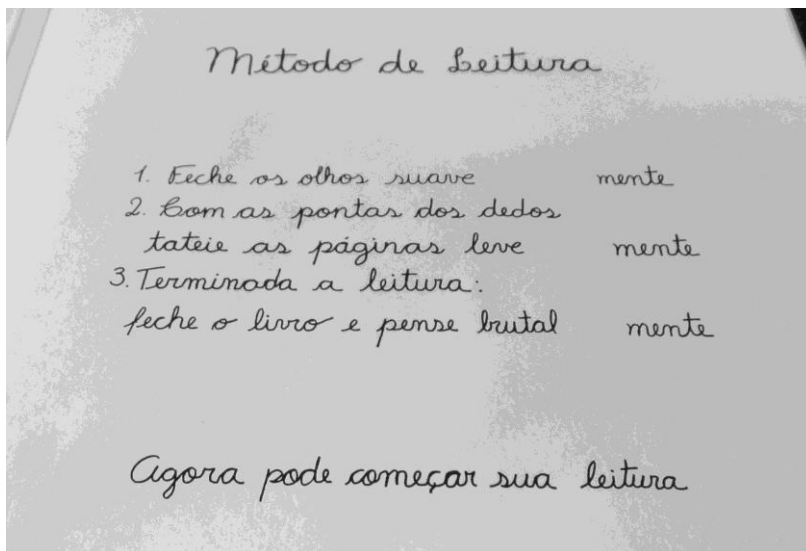 Método de Leitura
1. Feche os olhos suave mente
2. Com as pontas dos dedos
tateie as páginas leve mente
3. Terminada a leitura:
feche o livro e pense brutal mente
Agora pode começar sua leitura